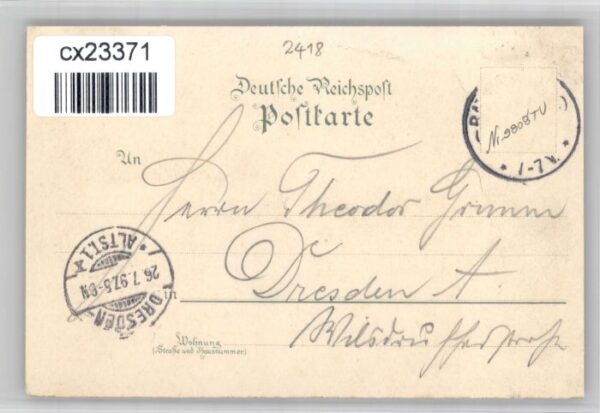 cx23371
2418
Deutsche Reichspost
Postkarte
Nr. 9808 TU
* 1-7 V. *
An
Herrn Theodor Grimm
* ALTST. 1 *
26.7.97. 5-6N
DRESDEN
in
Dresden A.
Wilsdrufferstraße
Wohnung
(Straße und Hausnummer)